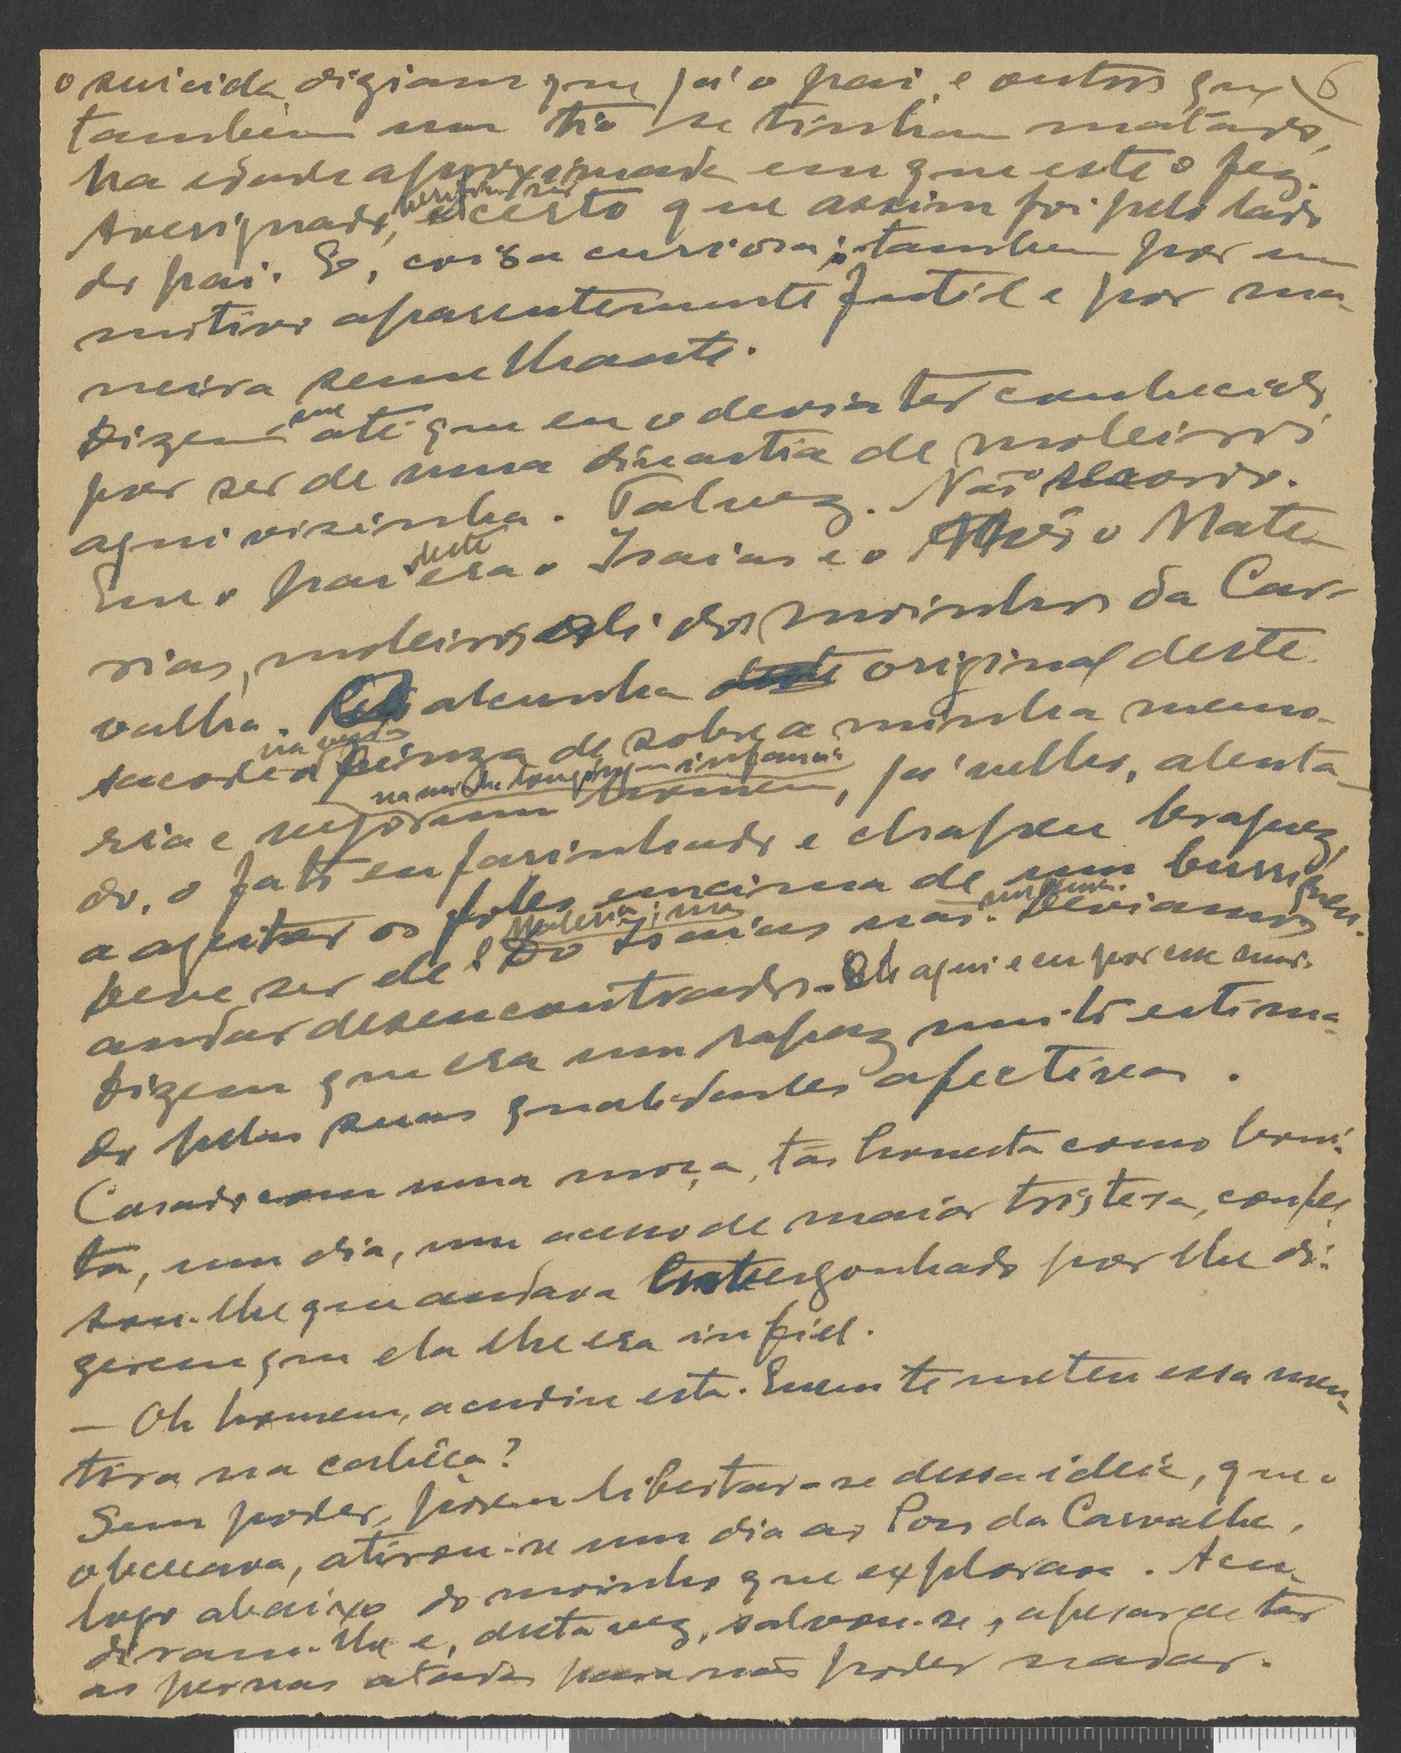 o suicida, diziam que já o pai, e outros que 6
tambem um tio se tinham matado,
na idade aproximada em que este o fez.
Averiguado, é certo que assim foi pelo lado
do pai. E, coisa curiosa: tambem por um
motivo aparentemente futil e por ma-
neira semelhante.
Dizem-me até que eu o devia ter conhecido
por ser de uma dinastia de moleiros
aqui visinha. Talvez. Não recordo.
Que o pai deste era o Isaias e o Avô o Mate
rias, moleiros ali dos moinhos da Car-
valha. alcunha original deste
sacode a cinza de sobre a minha memo-
ria e vejo na nevoa um homem, já velho, alenta-
do, o fato enfarinhado e chapeu braguez,
a ageitar os foles encima de um burriquei.
Deve ser ele! Do Isaias não. Deviamos
andar desencontrados. Ele aqui e eu por esse mun-
Dizem que era um rapaz muito estima-
do pelas suas qualidades afectivas.
Casado com uma moça, tão honesta como boni-
ta, um dia, num aceno de maior tristesa, confes-
sou-lhe que andava envergonhado por lhe di-
zerem que ela lhe era infiel.
— Oh homem, acudiu esta. Quem te meteu essa men-
tira na cabêça?
Sem poder, porem libertar-se dessa ideia, que o
obcecava, atirou-se um dia ao Poço da Carvalha,
logo abaixo do moinho que explorava. Acu-
diram-lhe e, desta vez, salvou-se, apesar de ter
as pernas atadas para não poder nadar.